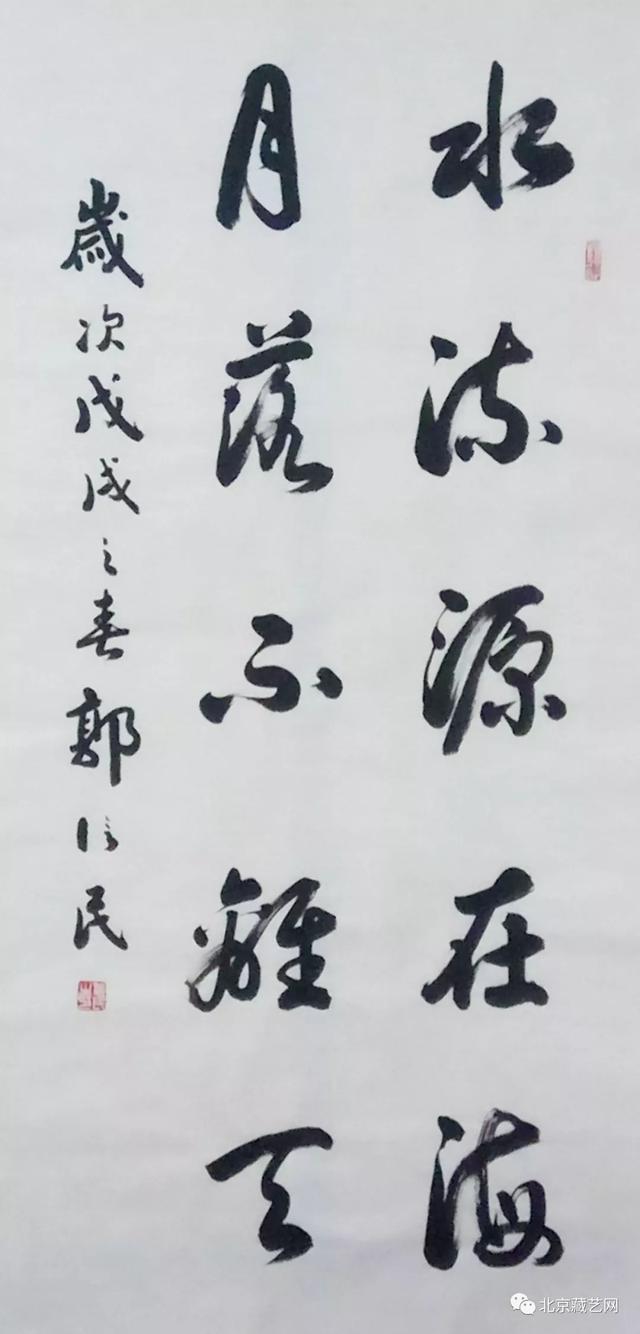 水流源在海
月落不離天
歲次戊戌之春郭信民
北京藏艺网